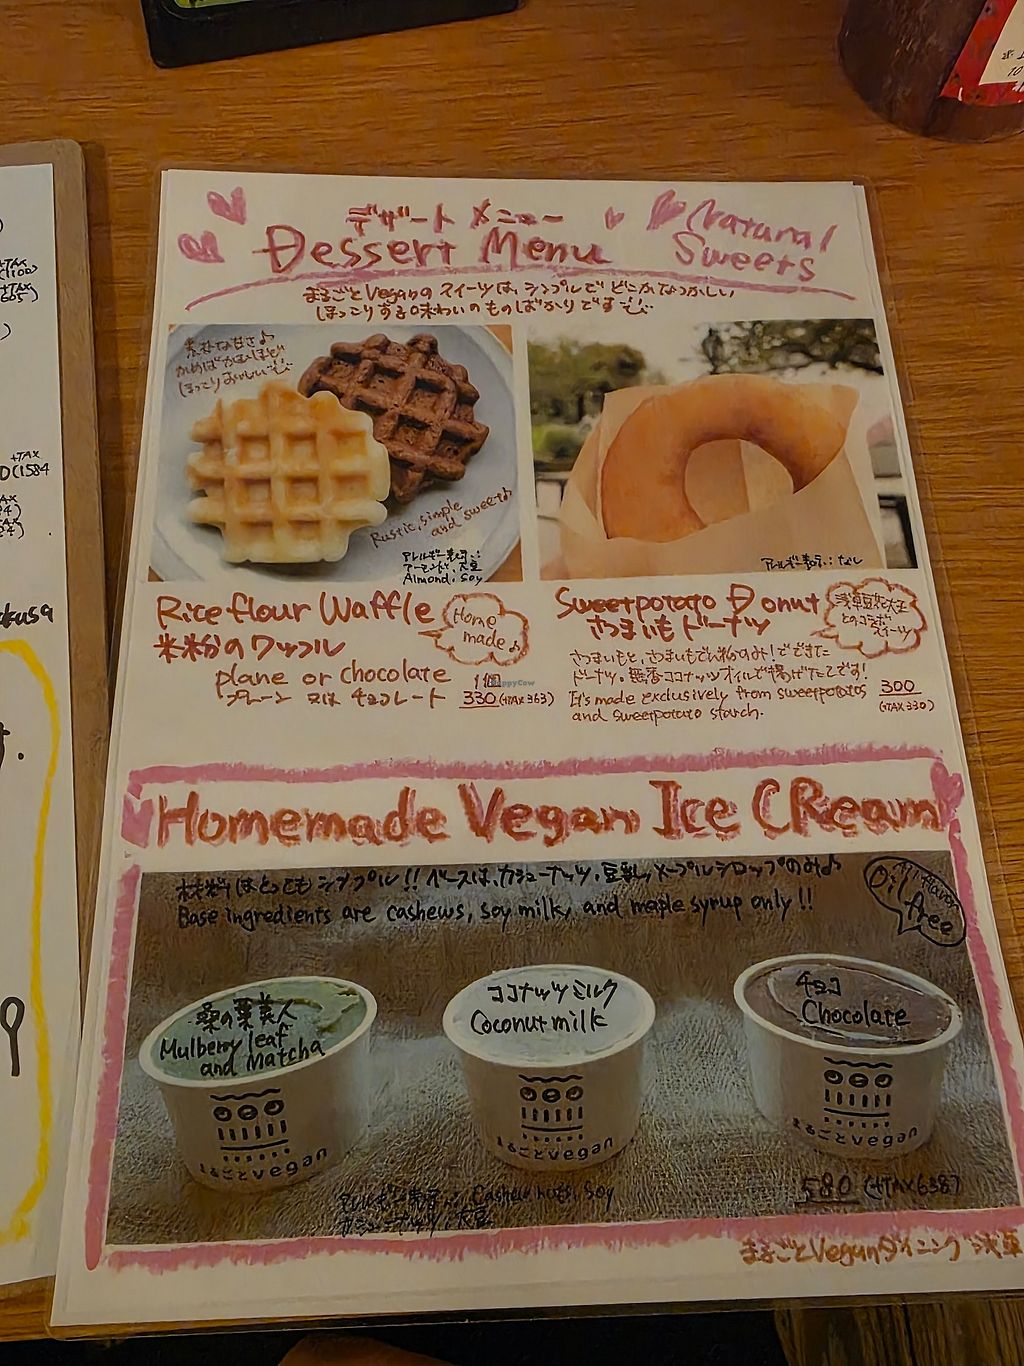 デザート メニュー
Dessert Menu
Natural
Sweets
まるごとVeganの スイーツは、シンプルで どこかなつかしい
ほっこりする味わいのものばかりです
素朴な甘さ♪
かめばかむほど
ほっこりおいしい
Rustic, simple
and sweet♪
アレルギー表示:
アーモンド、大豆
Almond, Soy
アレルギー表示: なし
Rice flour Waffle
米粉のワッフル
Home
made♪
plane or chocolate
プレーン 又は チョコレート
1個
330(+TAX 363)
Sweetpotato Donut
さつまいもドーナツ
浅草豆花大王
とのコラボ
スイーツ
さつまいもと、さつまいもでん粉のみ!でできた
ドーナツ。無香ココナッツオイルで揚げたてです!
It's made exclusively from sweetpotatos
and sweetpotato starch.
300
(+TAX 330)
Homemade Vegan Ice CReam
材料はとってもシンプル!! ベースは、カシューナッツ、豆乳、メープルシロップのみ♪
Base ingredients are cashews, soy milk, and maple syrup only!!
All flavor
Oil
free
桑の葉美人
Mulberry leaf
and Matcha
ココナッツミルク
Coconut milk
チョコ
Chocolate
まるごとvegan
まるごとvegan
まるごとvegan
アレルギー表示: Cashew nuts, Soy
カシューナッツ、大豆
580 (+TAX 638)
まるごとVeganダイニング浅草
HappyCow
+TAX
+TAX
kusa